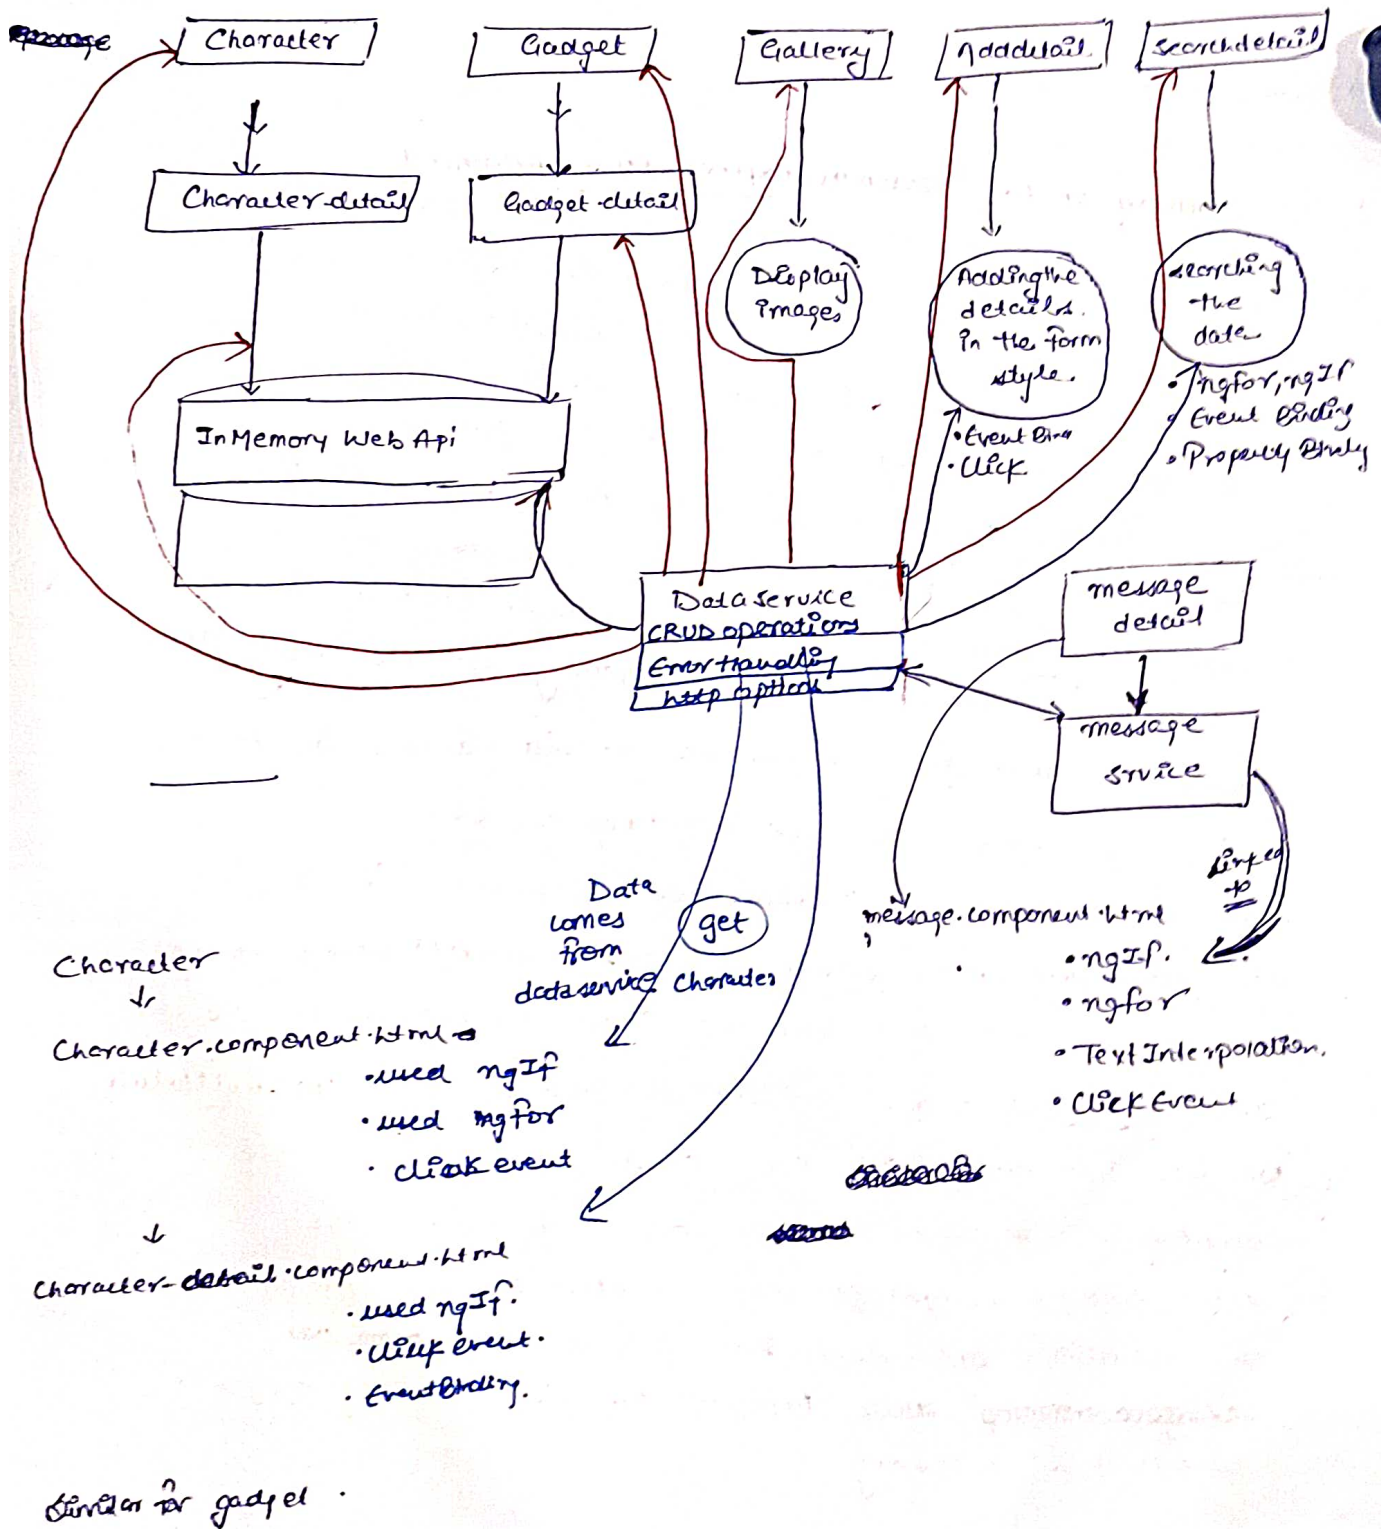 Character
Gadget
Gallery
Adddetail
Searchdetail
Character-detail
Gadget-detail
Display
images
Adding the
details.
in the form
style.
searching
the
data
• Event Bin
• Click
• ngfor, ngIf
• Event Binding
• Property Binding
InMemory Web Api
Data Service
CRUD operations
Error Handling
http options
message
detail
message
srvice
linked
to
Data
comes
from
dataservice
get
Character
message.component.html
• ngIf.
• ngfor
• Text Interpolation.
• Click Event
Character
Character.component.html
• used ngIf
• used ngfor
• click event
Character-detail.component.html
• used ngIf.
• click event.
• Event Binding.
Similar for gadget.